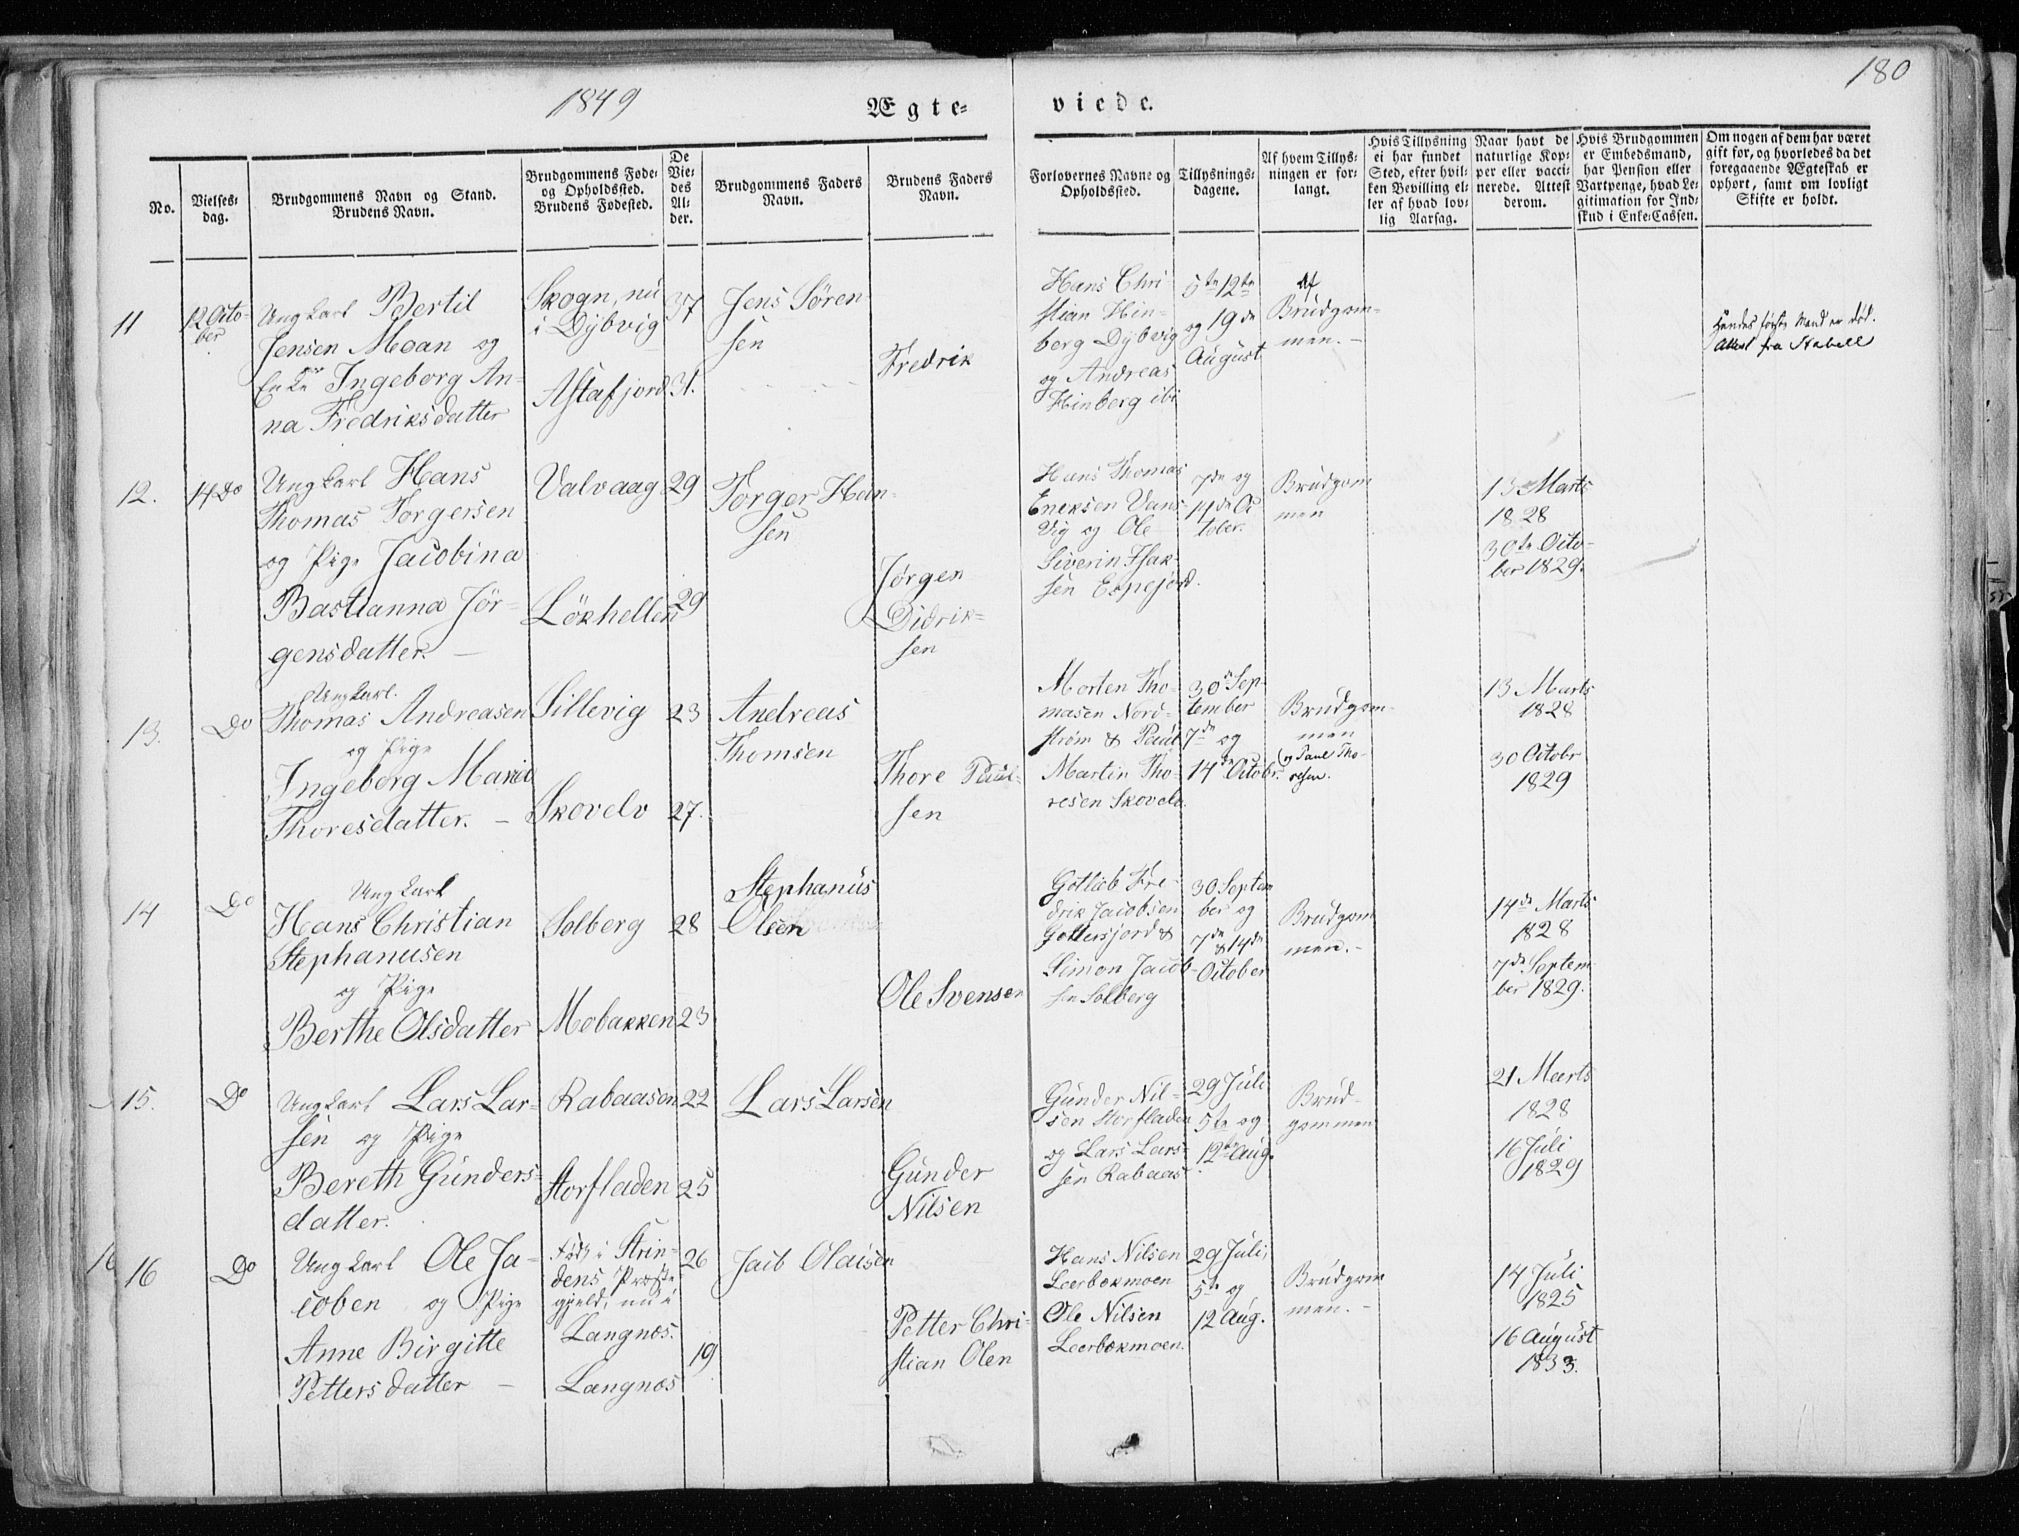 1849
Ægte-
viede.
180
No.
Vielses-
dag.
Brudgommens Navn og Stand.
Brudens Navn.
Brudgommens Føde-
og Opholdssted.
Brudens Fødested.
De
Vie-
des
Al-
der.
Brudgommens Faders
Navn.
Brudens Faders
Navn.
Forlovernes Navne og
Opholdssted.
Tillysnings-
dagene.
Af hvem Tillys-
ningen er for-
langt.
Hvis Tillysning
ei har fundet
Sted, efter hvil-
ken Bevilling el-
ler af hvad lov-
lig Aarsag.
Naar havt de
naturlige Kop-
per eller vacci-
nerede. Attest
derom.
Hvis Brudgommen
er Embedsmand,
har Pension eller
Vartpenge, hvad Le-
gitimation for Ind-
skud i Enke-Cassen.
Om nogen af dem har været
gift før, og hvorledes da det
foregaaende Ægteskab er
ophørt, samt om lovligt
Skifte er holdt.
11
12 Octo-
ber
Ungkarl Bertil
Jensen Moan og
Enke Ingeborg An-
na Fredriksdatter
Skogn, nu
i Dybvig
Astafjord
37
31.
Jens Søren-
sen
Fredrik
Hans Chri
stian Hin-
berg Dybvig
og Andreas
Hinberg ibi
5te 12te
og 19de
August
Af
Brudgom-
men.-
Hendes første Mand er død.
Attest fra Stabell
12.
14 Do
Ungkarl Hans
Thomas Torgersen
og Pige Jacobina
Bastianna Jør-
gensdatter. -
Valvaag
Løkhellen
29
29
Torger Han-
sen
Jørgen
Didrik-
sen
Hans Thomas
Ericksen Vans
vig og Ole
Siverin Isak-
sen Espejord.
7de og
14de Oc
tober.
Brudgom
men
13 Marts
1828
30te Octo-
ber 1829.
13.
Do
Ungkarl.
Thomas Andreasen
og Pige
Ingeborg Maria
Thoresdatter. -
Sillevig
Skovelv
23
27.
Andreas
Thomsen
Thore Paul-
sen
Morten Tho-
masen Nord-
strøm & Paul
Martin Tho-
resen Skovelv.
30 Sep-
tember
7de og
14de Octobr.
Brudgom-
men
(og Paul Tho-
resen.
13 Marts
1828
30 Octobr
1829
14
Do
Ungkarl
Hans Christian
Stephanusen
og Pige
Berthe Olsdatter
Solberg
Mobakken
28
23
Stephanus
Olsen
Ole Svensen
Gotlieb Fre-
drik Jacobsen
Gottersjord &
Simon Jacob-
sen Solberg
30 Septem
ber og
7de & 14de
October
Brudgom
men.-
14de Marts
1828
7de Septem
ber 1829.
15.
Do
Ungkarl Lars Lar-
sen og Pige
Bereth Gunders-
datter.
Rabaasen
Storfladen
22
25
Lars Larsen
Gunder
Nilsen
Gunder Nil-
sen Storfladen
og Lars Lars-
sen Rabaas
29 Juli
5te og
12te Aug.
Brud-
gommen
21 Marts
1828
16 Juli
1829
16
16
Do
Ungkarl Ole Ja-
cobsen og Pige
Anne Birgitte
Pettersdatter -
Født i Strin-
dens Præste
gjeld, nu i
Langnos.
Langnos
26
19
Jacb Olaisen
Petter Chri-
stian Olen
Hans Nilsen
Leerbokmoen
Ole Nilsen
Leerbokmoen.
29 Juli,
5te og
12 Aug.
Brudgom
men. -
14 Juli
1825
16 August
1833.